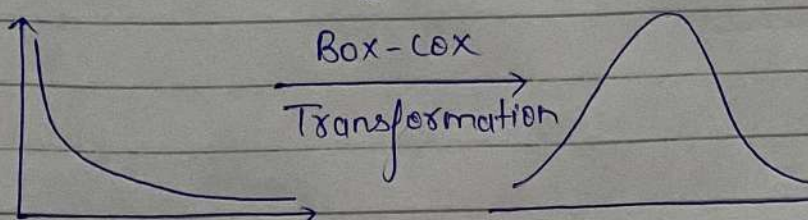 Box-Cox
Transformation